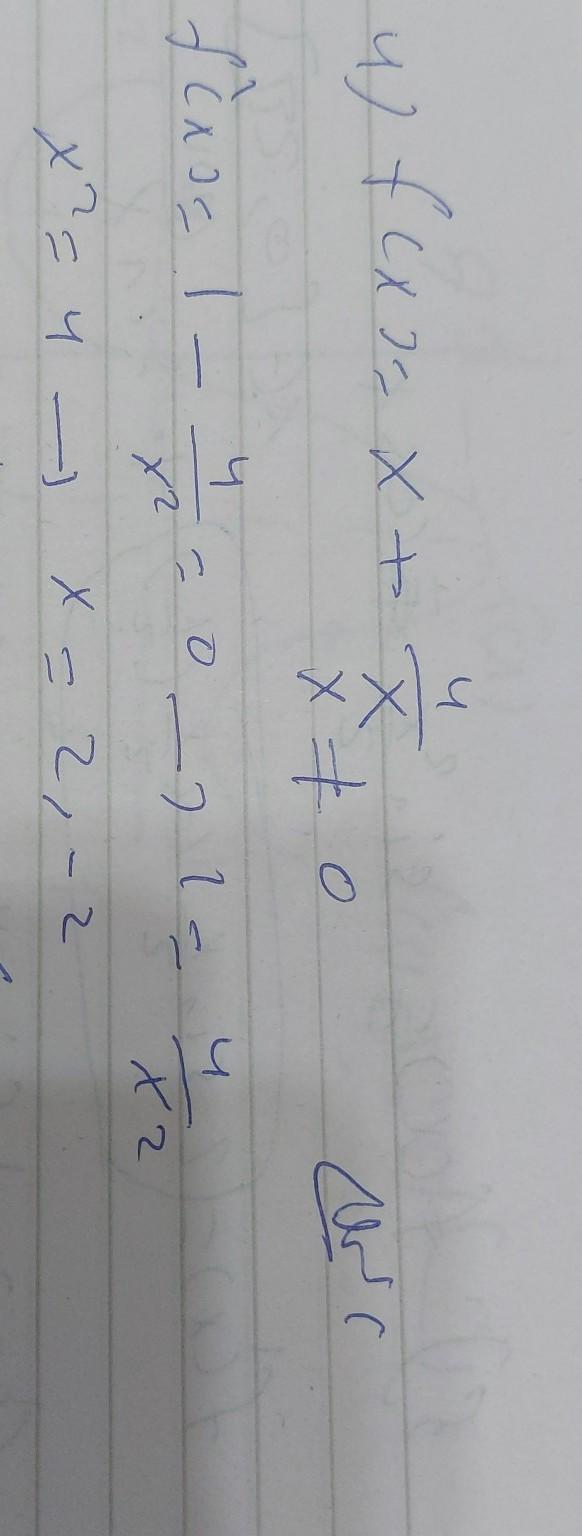 4) f(x) = x + 4/x
x ≠ 0
f'(x) = 1 - 4/x² = 0 → 1 = 4/x²
x² = 4 → x = 2, -2